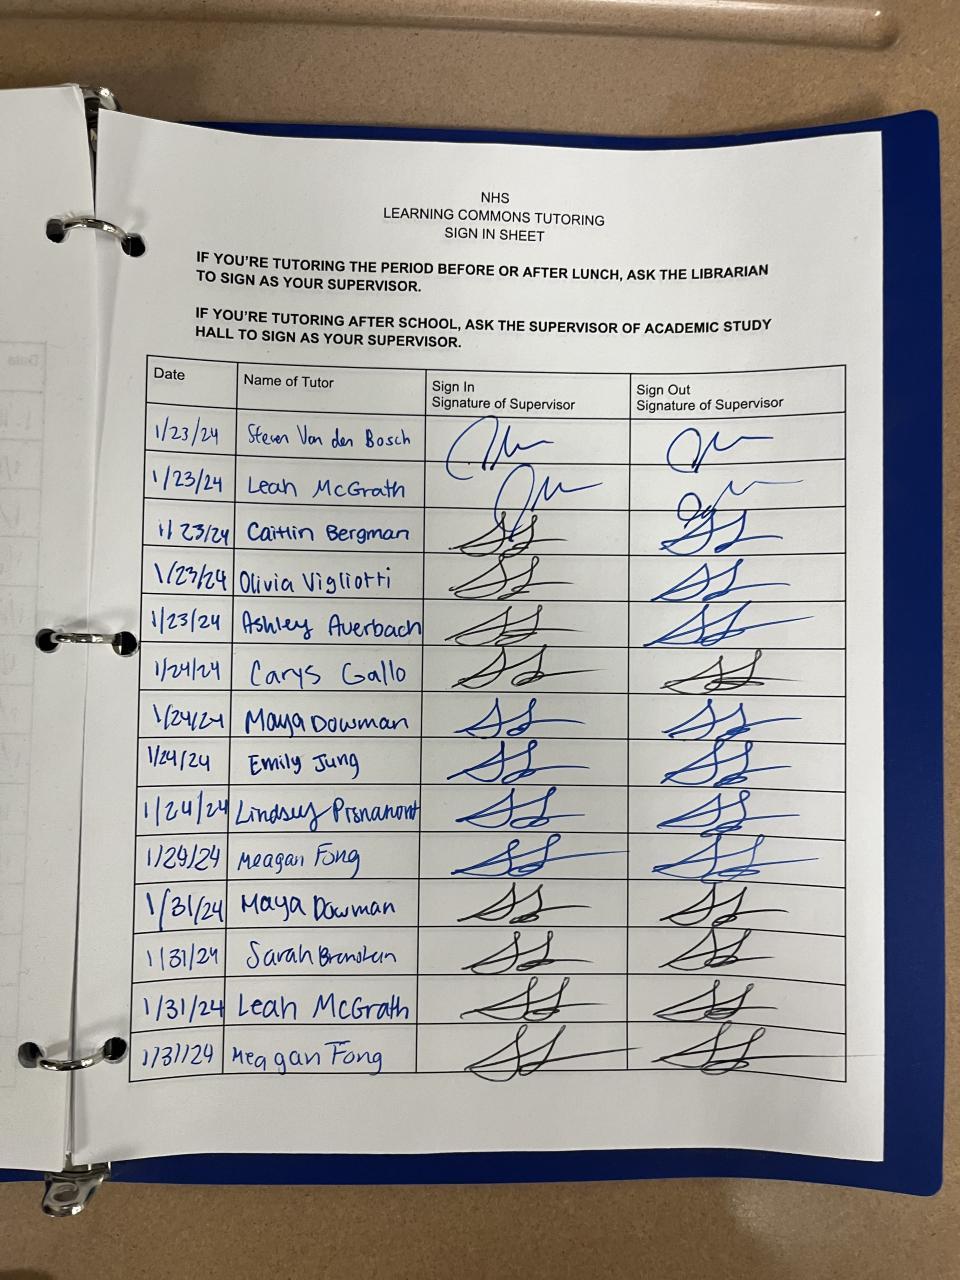 NHS
LEARNING COMMONS TUTORING
SIGN IN SHEET
IF YOU'RE TUTORING THE PERIOD BEFORE OR AFTER LUNCH, ASK THE LIBRARIAN
TO SIGN AS YOUR SUPERVISOR.
IF YOU'RE TUTORING AFTER SCHOOL, ASK THE SUPERVISOR OF ACADEMIC STUDY
HALL TO SIGN AS YOUR SUPERVISOR.
Date Name of Tutor Sign In Sign Out
Signature of Supervisor Signature of Supervisor
1/23/24 Steven Van den Bosch
1/23/24 Leah McGrath
1/23/24 Caitlin Bergman
1/23/24 Olivia Vigliotti
1/23/24 Ashley Averbach
1/24/24 Carys Gallo
1/24/24 Maya Dowman
1/24/24 Emily Jung
1/24/24 Lindsey
1/29/24 Meagan Fong
1/31/24 Maya Dowman
1/31/24 Sarah
1/31/24 Leah McGrath
1/31/24 Meagan Fong